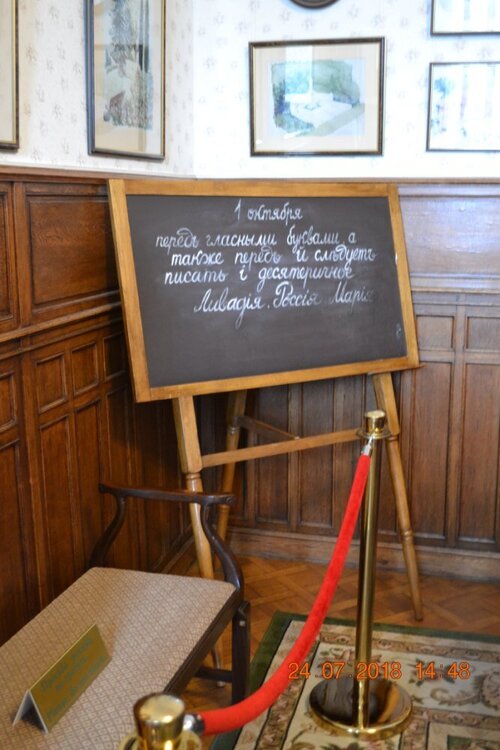 1 октября
передъ гласными буквами, а
также передъ й слѣдуетъ
писать i десятеричное
Ливадiя. Россiя. Марiя
24 07 2018 14:48